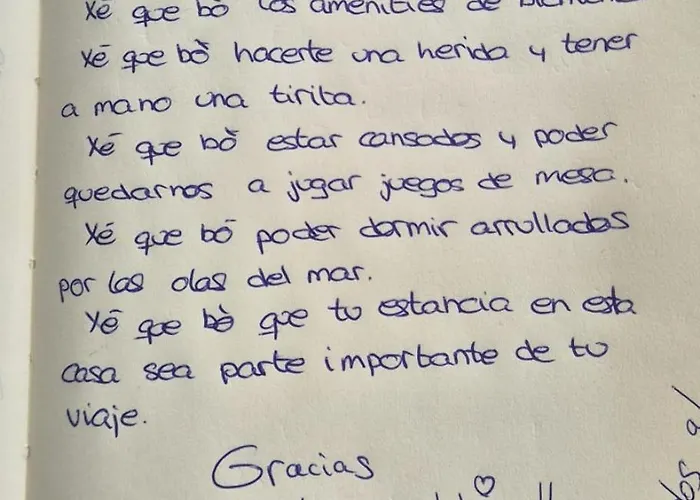 Xé que bò los amenities de
Xé que bò hacerte una herida y tener
a mano una tirita.
Xé que bò estar cansados y poder
quedarnos a jugar juegos de mesa.
Xé que bò poder dormir arrullados
por las olas del mar.
Xé que bò que tu estancia en esta
casa sea parte importante de tu
viaje.
Gracias